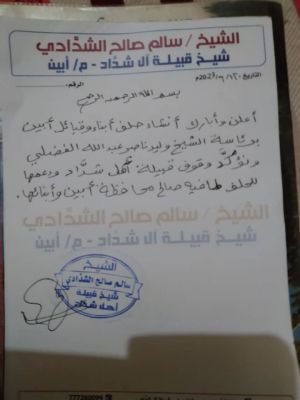 الشيخ / سالم صالح الشدّادي
شيخ قبيلة آل شدّاد - م/ أبين
التاريخ ٢٠٢٣/٩/٢٠م
الرقم:
بسم الله الرحمن الرحيم
أعلن وأبارك إنشاء حلف أبناء وقبائل أبين
برئاسة الشيخ وليد ناصر عبدالله الفضلي
ونؤكد وقوف قبيلة أهل شدّاد ودعمها
للحلف لما فيه صالح محافظة أبين وأبنائها.
الشيخ / سالم صالح الشدّادي
شيخ قبيلة آل شدّاد - م/ أبين
الشيخ
سالم صالح الشدّادي
شيخ قبيلة
أهل شداد